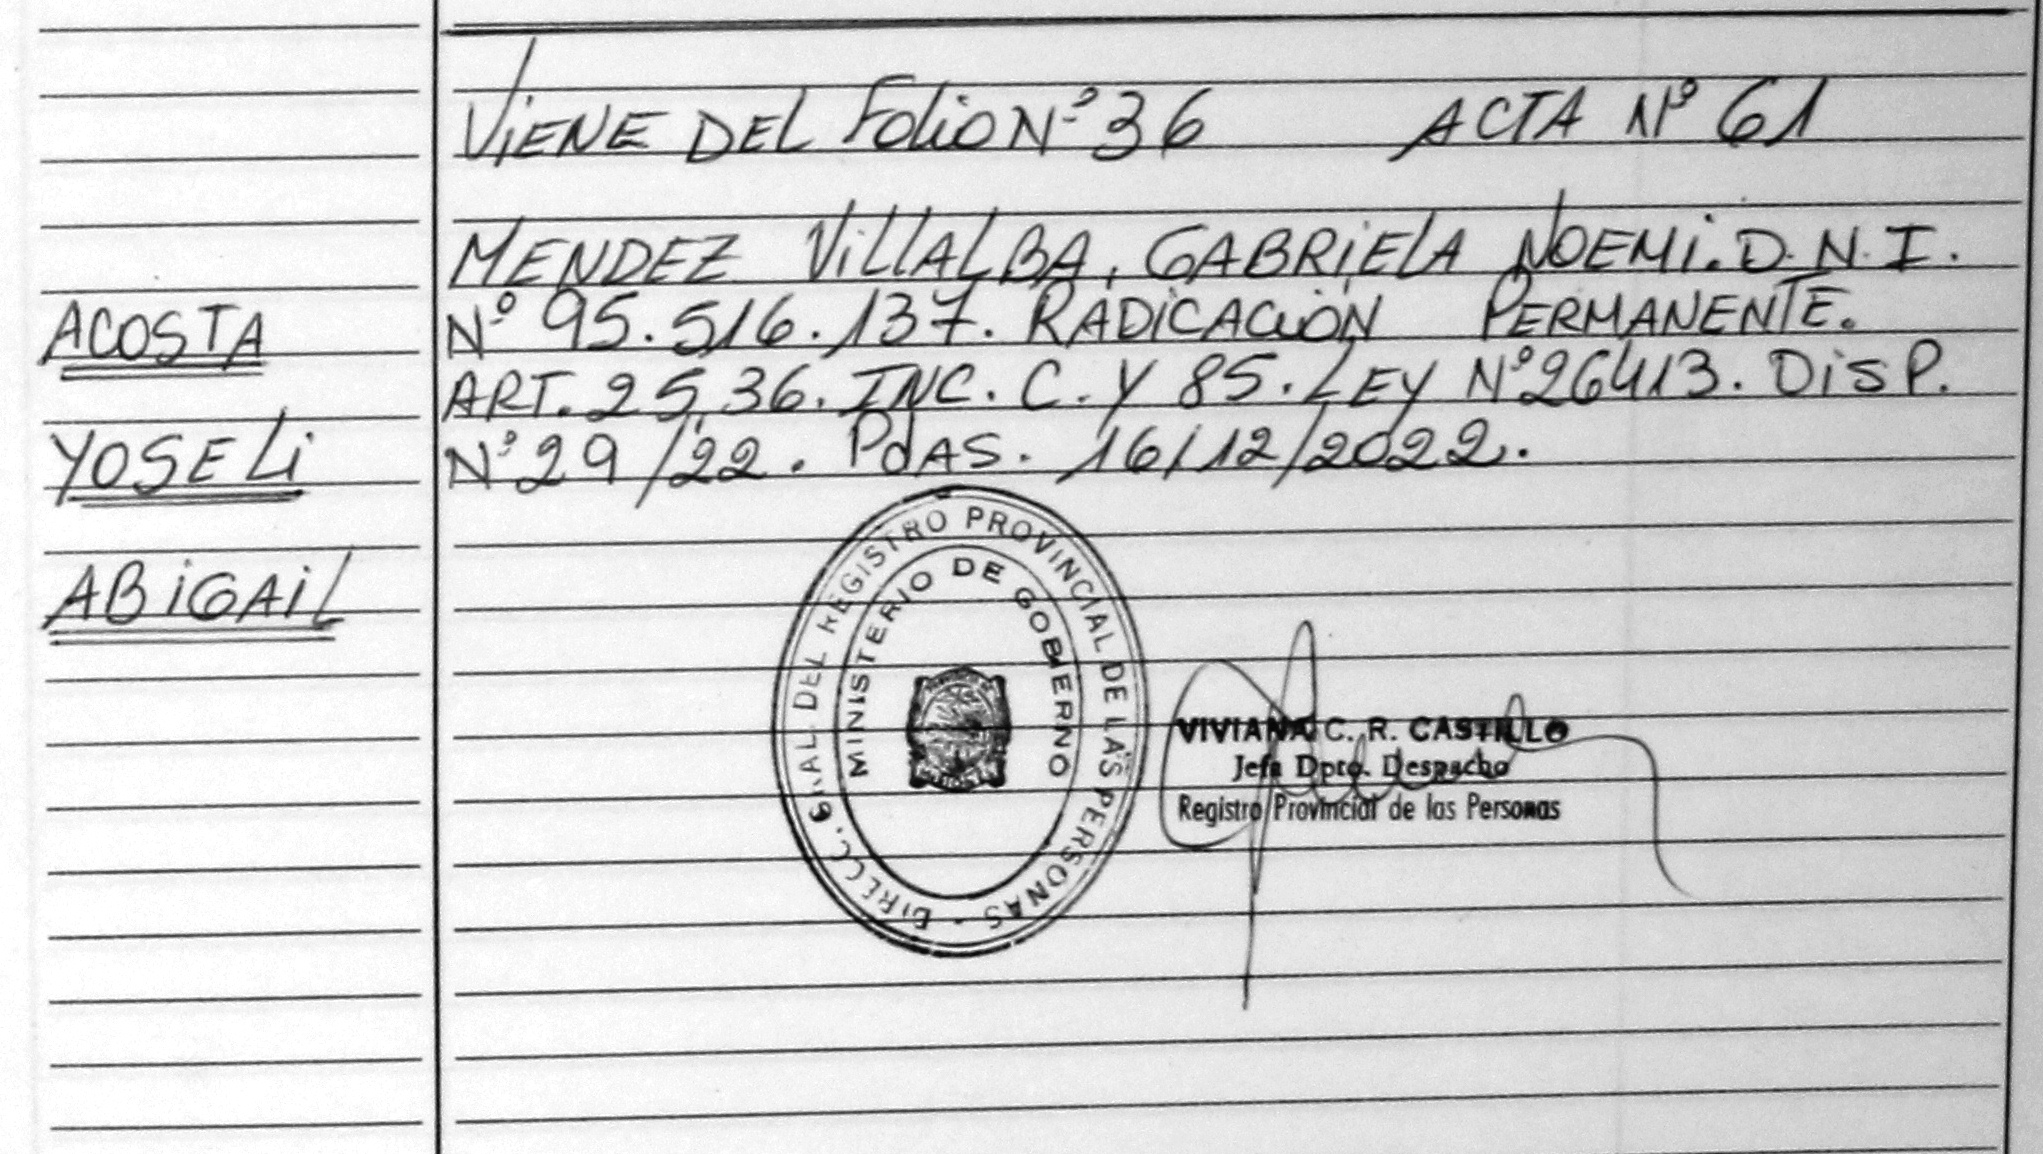 VIENE DEL Folio Nº 36 ACTA Nº 61
MENDEZ VILLALBA, GABRIELA NOEMI. D.N.I.
Nº 95.516.137. RADICACIÓN PERMANENTE.
ART. 25, 36. INC. C. Y 85. LEY Nº 26413. DISP.
Nº 29/22. PdAS. 16/12/2022.
ACOSTA
YOSELI
ABIGAIL
DIRECC. GRAL. DEL REGISTRO PROVINCIAL DE LAS PERSONAS -
MINISTERIO DE GOBIERNO
VIVIANA C. R. CASTILLO
Jefa Dpto. Despacho
Registro Provincial de las Personas